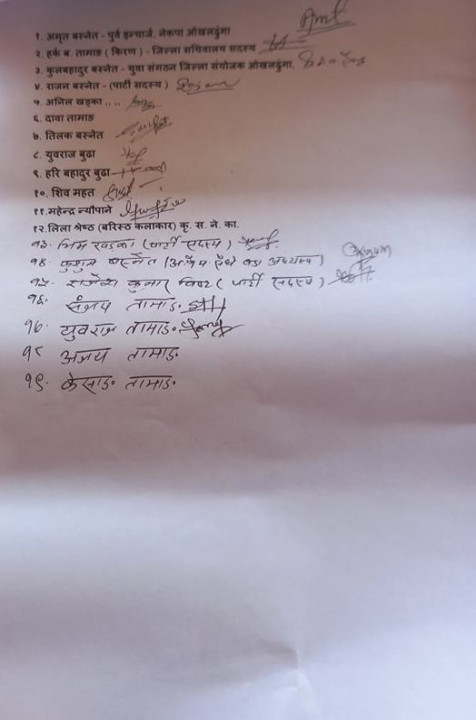 १. अमृत बस्नेत - पुर्व इन्चार्ज, नेकपा ओखलढुंगा
२. हर्क ब. तामाङ ( किरण ) - जिल्ला सचिवालय सदस्य
३. कुलबहादुर बस्नेत - युवा संगठन जिल्ला संयोजक ओखलढुंगा.
४. राजन बस्नेत - (पार्टी सदस्य )
५. अनिल खड्का .. ..
६. दावा तामाङ
७. तिलक बस्नेत
८. युवराज बुढा
९. हरि बहादुर बुढा
१०. शिव महत
११. महेन्द्र न्यौपाने
१२. लिला श्रेष्ठ (बरिस्ठ कलाकार) कृ. स. ने. का.
१३. भिम खड्का (पार्टी सदस्य )
१४. बस्नेत
१५. कुमार ( पार्टी सदस्य )
१६. संजय तामाङ.
१७. युवराज तामाङ.
१८ अजय तामाङ.
१९. केसाङ. तामाङ.